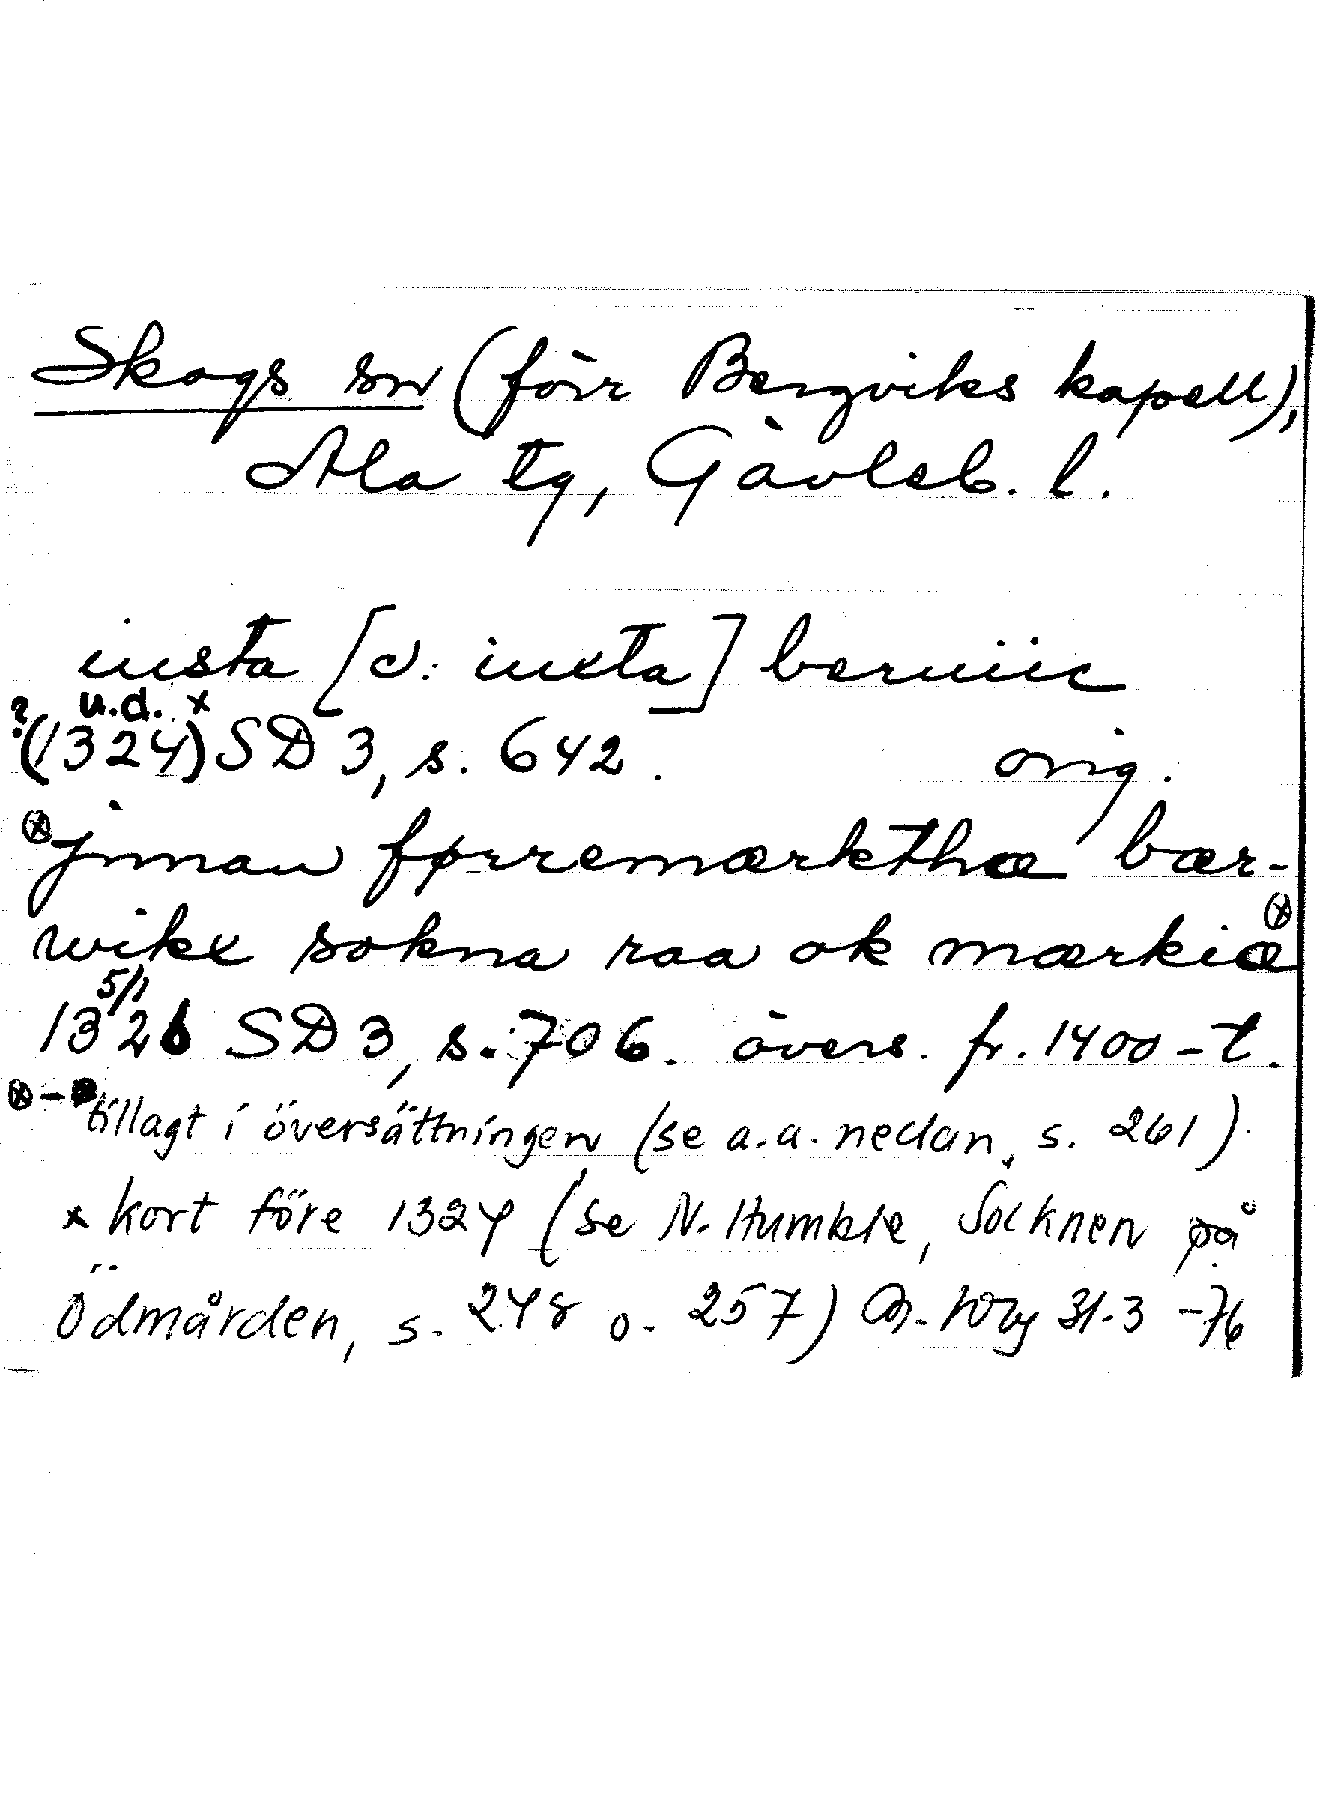 Skogs sn (förr Bergviks kapell),
Ala tg, Gävleb. l.
insta [ɔ: iuxta] beruiic
u.d. x
?(1324) SD 3, s. 642. orig.
⊗ jnnan førremærkthæ bær-
wikx sokna raa ok mærkiæ ⊗
5/1
1326 SD 3, s. 706. övers. fr. 1400-t.
⊗-⊗ tillagt i översättningen (se a.a. nedan, s. 261).
x kort före 1324 (se N. Humble, Socknen på
Ödmården, s. 248 o. 257) 31.3 -76